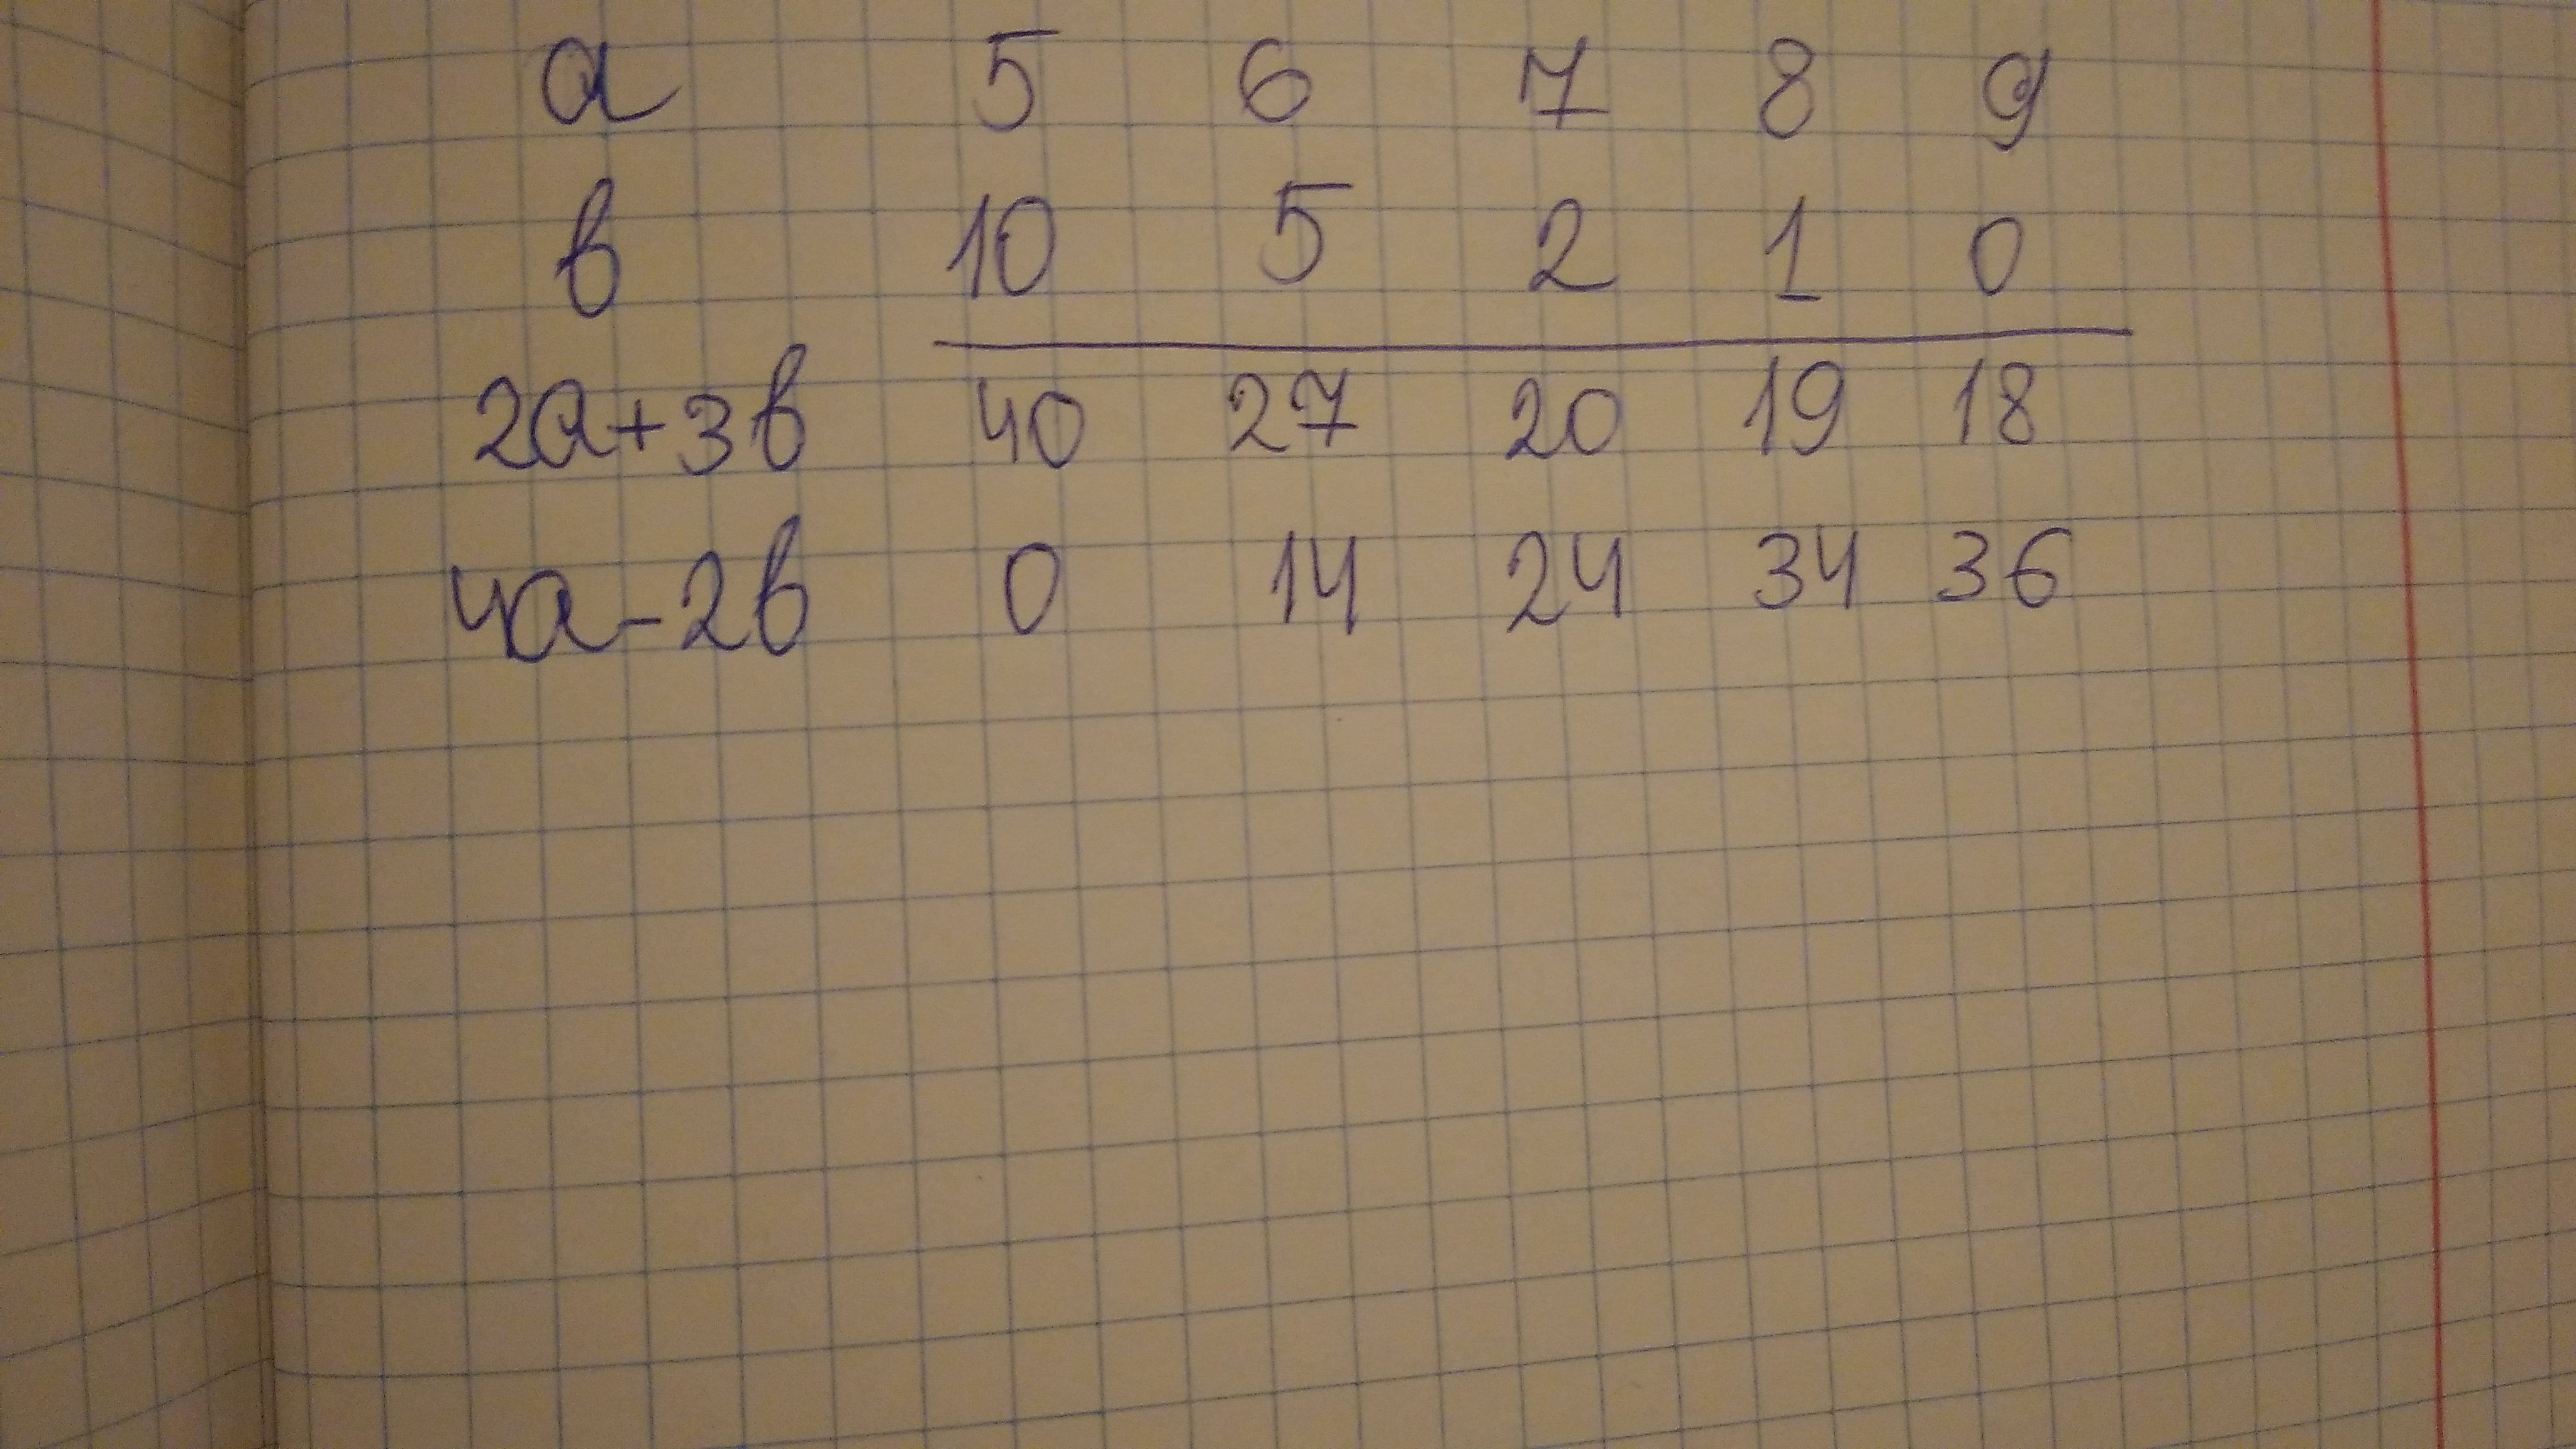 a 5 6 7 8 9
b 10 5 2 1 0
2a+3b 40 27 20 19 18
4a-2b 0 14 24 34 36